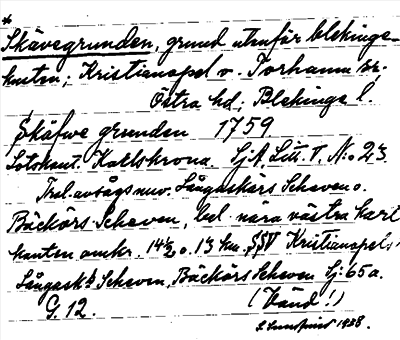 *
Skävegrunden, grund utanför blekinge-
kusten; Kristianopel o. Torhamn sn.
Östra hd; Blekinge l.
Skäfwe grunden 1759.
Sotokant. Karlskrona. Sj.A. Litt. T. N:o 23.
Långaskärs Scheven o.
Bäckörs Scheven, bel. nära västra kart
kanten omkr. 14½ o. 13 km. SSV Kristianopel;
Långask:s Scheven, Bäckörs Scheven Sj: 65 a.
G. 12. (Vänd!)
1938.